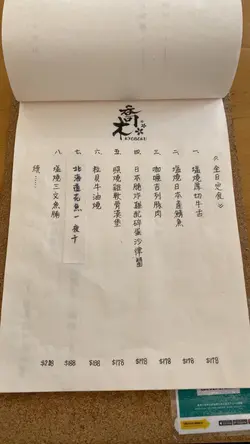 喬木
全日定食
一、塩燒厚切牛舌 $178
二、塩燒日本喜鯖魚 $178
三、咖喱吉列豚肉 $178
四、日本雞炸雞配碎蛋沙律醬 $178
五、照燒雞軟骨漢堡 $178
六、粒貝牛油燒 $188
七、北海道花魚一夜干 $188
八、塩燒三文魚腩 $208
續......